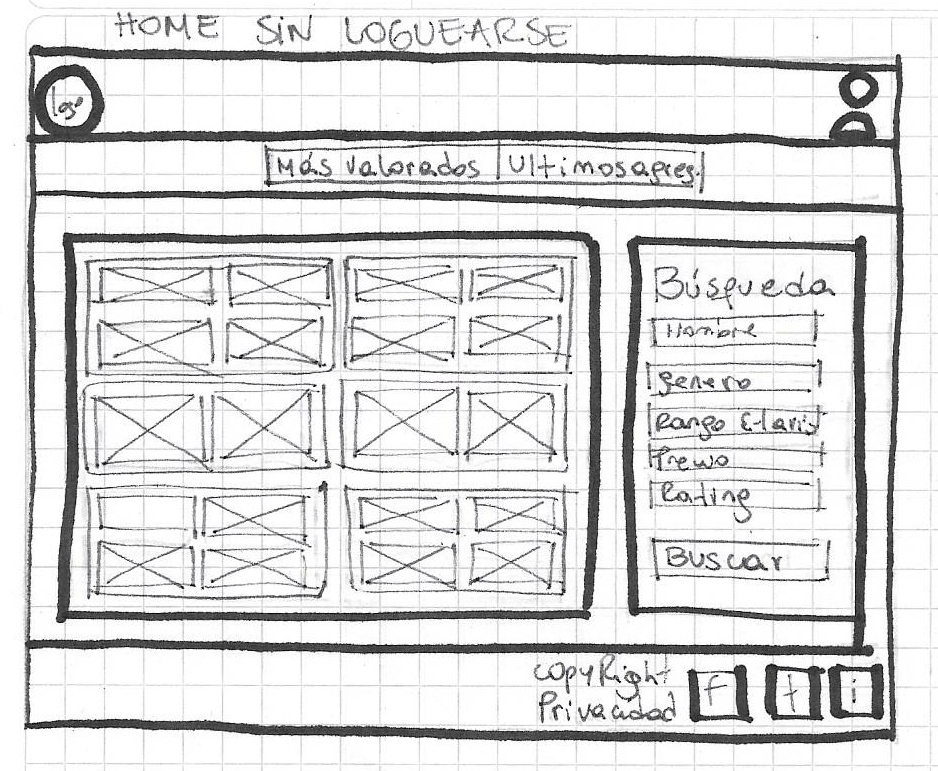 HOME SIN LOGUEARSE
logo
Más valorados
Ultimos agreg.
Búsqueda
Nombre
genero
Rango
Precio
Rating
Buscar
copyRight
Privacidad
f
t
i